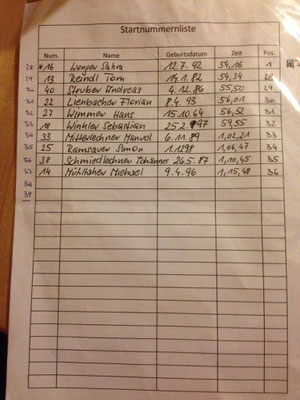 Startnummernliste
Num. Name Geburtsdatum Zeit Pos.
28 *16 Wenger Petra 12.7.92 54,16 1
29 13 Reindl Tom 14.1.82 54,34 28
30 40 Struber Andreas 4.12.86 55,50 29
31 22 Lienbacher Florian 8.4.93 56,01 30
32 27 Wimmer Hans 15.10.64 56,52 31
33 18 Winkler Sebastian 25.2.97 59,55 32
34 33 Mitterlechner Manuel 6.11.89 1,02,21 33
35 25 Ramsauer Simon 1.1298 1,06,47 34
36 38 Schmiedlechner Johannes 26.5.87 1,10,45 35
37 14 Mühlthaler Michael 9.4.96 1,15,48 36
38
39